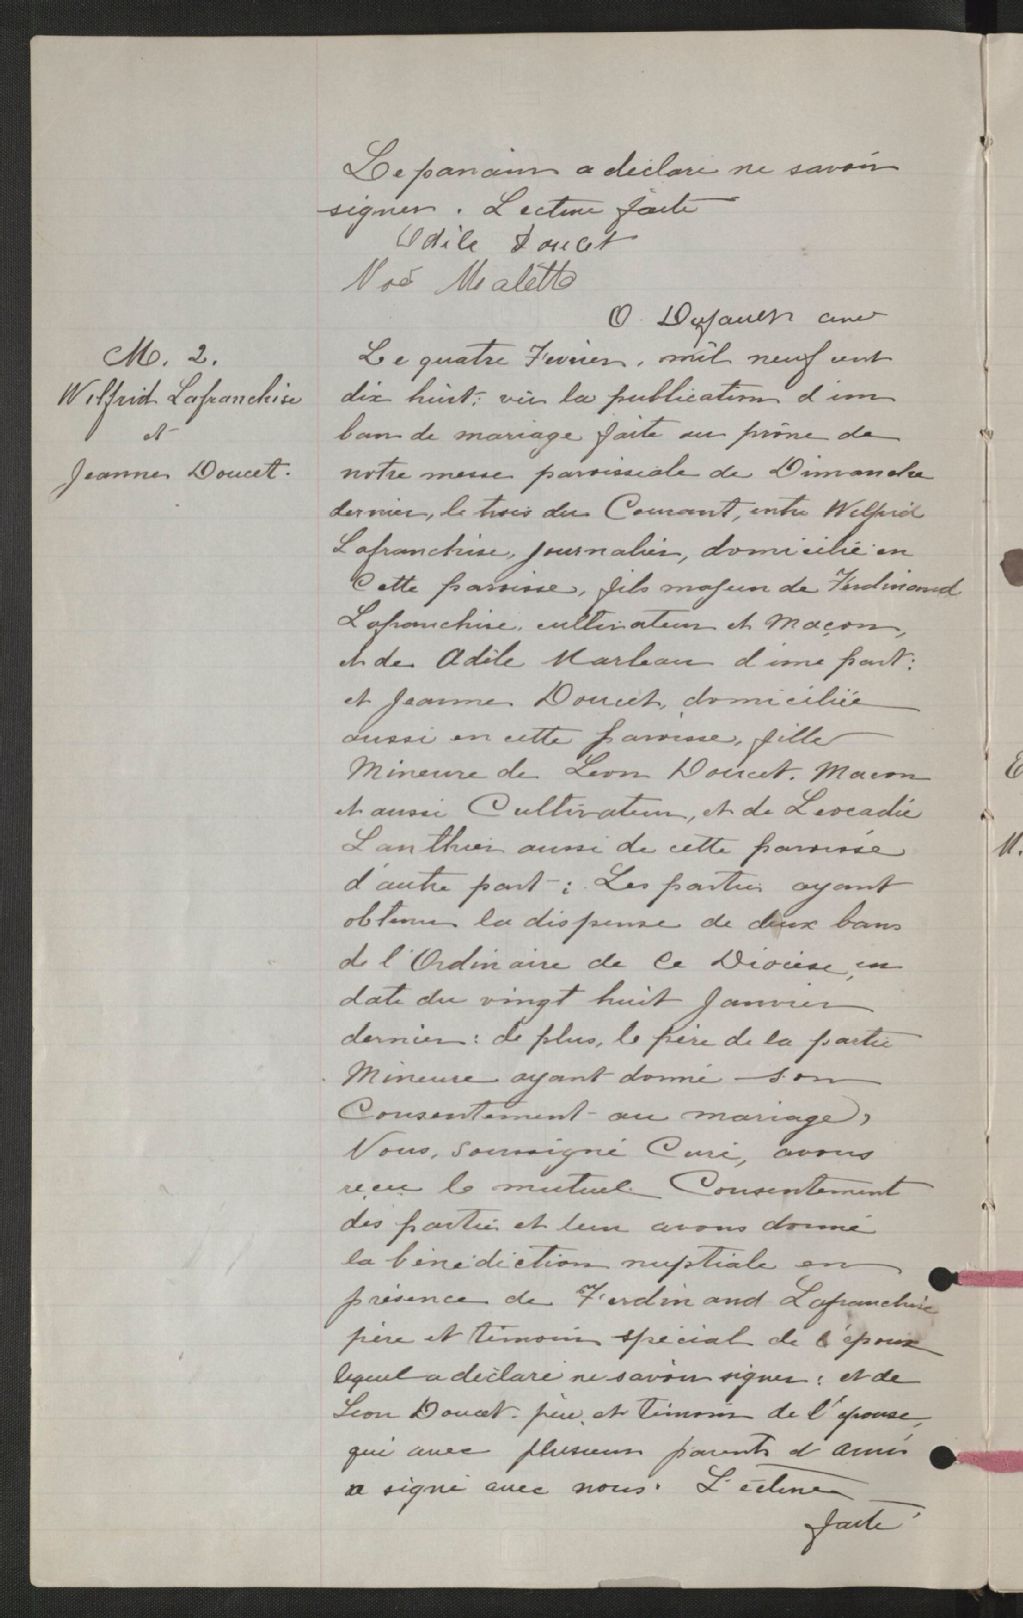 Le parrain a déclaré ne savoir
signer. Lecture faite
Odile Doucet
Noé Malette
O. Dufault curé
M. 2.
Wilfrid Lafranchise
et
Jeanne Doucet.
Le quatre Fevrier, mil neuf cent
dix huit: vu la publication d'un
ban de mariage faite au prône de
notre messe paroissiale de Dimanche
dernier, le trois du Courant, entre Wilfrid
Lafranchise, Journalier, domicilié en
Cette paroisse, fils majeur de Ferdinand
Lafranchise, cultivateur et Maçon,
et de Adèle Marleau d'une part:
et Jeanne Doucet, domiciliée
aussi en cette paroisse, fille
Mineure de Leon Doucet, Macon
et aussi Cultivateur, et de Leocadie
Lanthier aussi de cette paroisse
d'autre part: Les parties ayant
obtenu la dispense de deux bans
de l'Ordinaire de Ce Diocèse, en
date du vingt huit Janvier
dernier: de plus, le père de la partie
Mineure ayant donné son
Consentement au mariage,
Nous, soussigné Curé, avons
reçu le mutuel Consentement
des parties et leur avons donné
la bénédiction nuptiale en
présence de Ferdinand Lafranchise
père et témoin spécial de l'époux
lequel a déclaré ne savoir signer: et de
Leon Doucet père et témoin de l'épouse,
qui avec plusieurs parents et amis
a signé avec nous. Lecture
faite